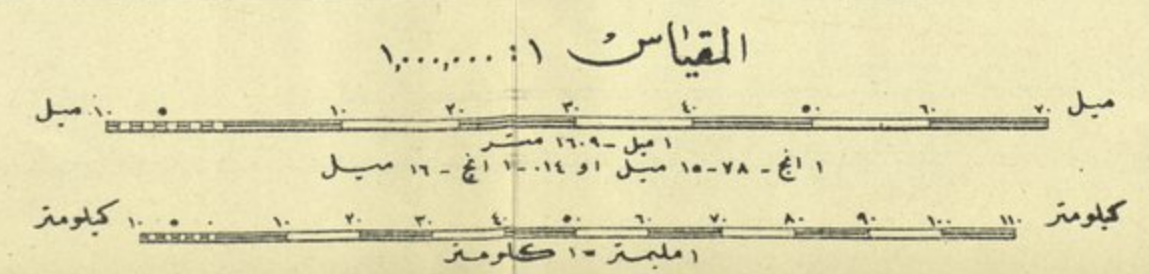 المقياس ١ : ١,٠٠٠,٠٠٠
ميل ١٠ ٥ ١٠ ٢٠ ٣٠ ٤٠ ٥٠ ٦٠ ٧٠ ميل
١ ميل - ١٦٠٩ متر
١ انج - ٧٨-١٥ ميل او ٠١٤-١ انج - ١٦ ميل
كيلومتر ١٠ ٥ ٠ ١٠ ٢٠ ٣٠ ٤٠ ٥٠ ٦٠ ٧٠ ٨٠ ٩٠ ١٠٠ ١١٠ كيلومتر
١ مليمتر = ١ كلومتر